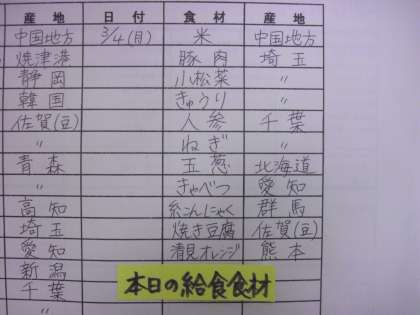 産地 日付 食材 産地
中国地方 3/4(月) 米 中国地方
焼津港 豚肉 埼玉
静岡 小松菜 〃
韓国 きゅうり 〃
佐賀(豆) 人参 千葉
〃 ねぎ 〃
青森 玉葱 北海道
〃 きゃべつ 愛知
高知 糸こんにゃく 群馬
埼玉 焼き豆腐 佐賀(豆)
愛知 清見オレンジ 熊本
新潟
千葉
〃
本日の給食食材